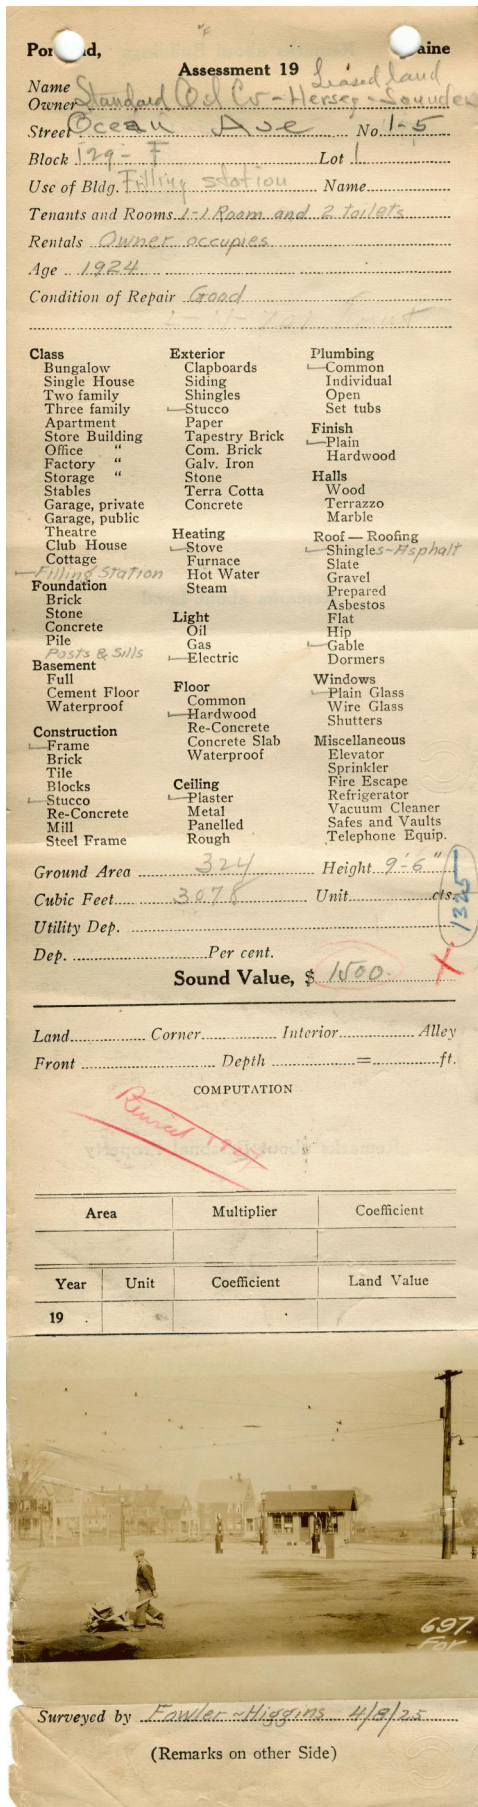 Por d, aine
Assessment 19
Leased land
Name
Owner Standard Oil Co - Hersey - Sounder
Street Ocean Ave No. 1-5
Block 129-F Lot 1
Use of Bldg. Filling station Name
Tenants and Rooms 1-1 Room and 2 toilets
Rentals Owner occupies
Age 1924
Condition of Repair Good
Class
Bungalow
Single House
Two family
Three family
Apartment
Store Building
Office "
Factory "
Storage "
Stables
Garage, private
Garage, public
Theatre
Club House
Cottage
Filling Station
Foundation
Brick
Stone
Concrete
Pile
Posts & Sills
Basement
Full
Cement Floor
Waterproof
Construction
Frame
Brick
Tile
Blocks
Stucco
Re-Concrete
Mill
Steel Frame
Exterior
Clapboards
Siding
Shingles
Stucco
Paper
Tapestry Brick
Com. Brick
Galv. Iron
Stone
Terra Cotta
Concrete
Heating
Stove
Furnace
Hot Water
Steam
Light
Oil
Gas
Electric
Floor
Common
Hardwood
Re-Concrete
Concrete Slab
Waterproof
Ceiling
Plaster
Metal
Panelled
Rough
Plumbing
Common
Individual
Open
Set tubs
Finish
Plain
Hardwood
Halls
Wood
Terrazzo
Marble
Roof — Roofing
Shingles ~ Asphalt
Slate
Gravel
Prepared
Asbestos
Flat
Hip
Gable
Dormers
Windows
Plain Glass
Wire Glass
Shutters
Miscellaneous
Elevator
Sprinkler
Fire Escape
Refrigerator
Vacuum Cleaner
Safes and Vaults
Telephone Equip.
Ground Area 324 Height 9'-6"
Cubic Feet 3078 Unit cts.
1325
Utility Dep.
Dep. Per cent.
Sound Value, $ 1500.
Land Corner Interior Alley
Front Depth = ft.
COMPUTATION
Revised
Area Multiplier Coefficient
Year Unit Coefficient Land Value
19
697.
For
Surveyed by Fowler ~ Higgins 4/8/25
(Remarks on other Side)